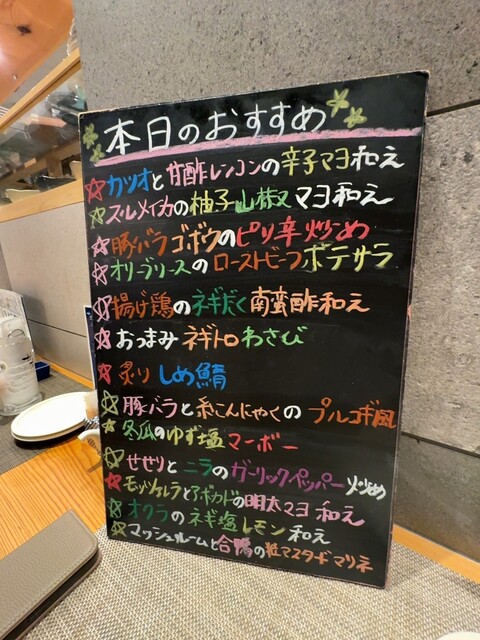 本日のおすすめ
カツオと甘酢レンコンの辛子マヨ和え
スルメイカの柚子山椒マヨ和え
豚バラゴボウのピリ辛炒め
オリーブソースのローストビーフポテサラ
揚げ鶏のネギだく南蛮酢和え
おつまみネギトロわさび
炙りしめ鯖
豚バラと糸こんにゃくのプルコギ風
冬瓜のゆず塩マーボー
せせりとニラのガーリックペッパー炒め
モッツァレラとアボカドの明太マヨ和え
オクラのネギ塩レモン和え
マッシュルームと合鴨の粒マスタードマリネ